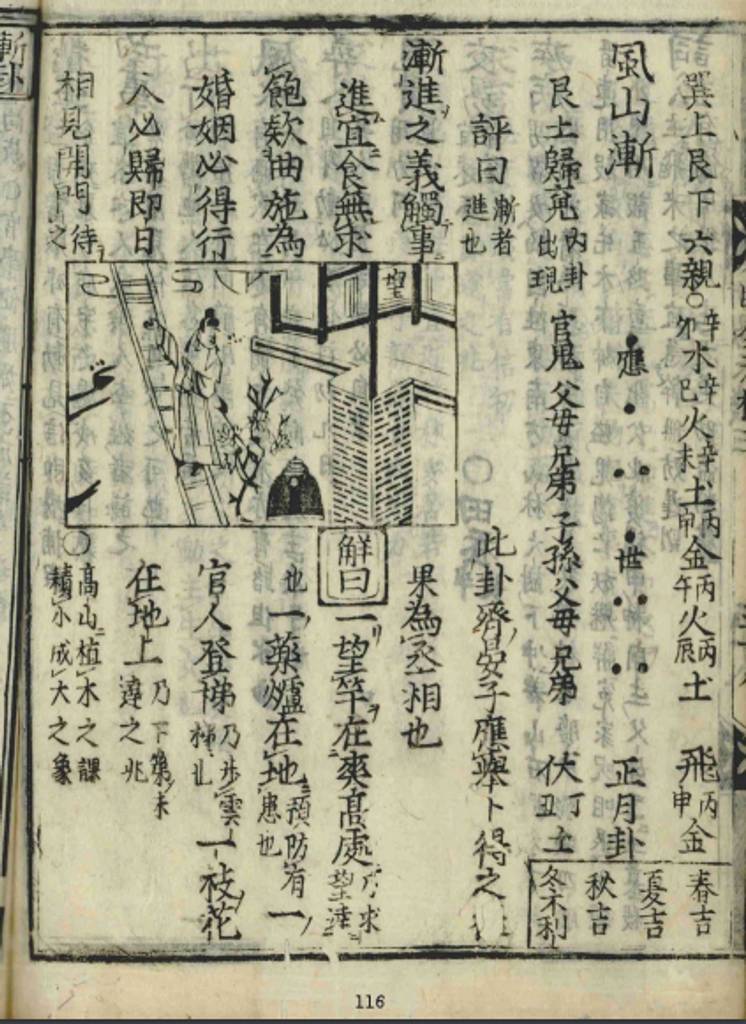 巽上艮下六親○辛卯水辛巳火辛未土丙申金丙午火丙辰土 飛丙申金
風山漸 應 世 正月卦
艮土歸䰟内卦出現 官鬼父母兄弟子孫父母兄弟 伏丁丑土
春吉
夏吉
秋吉
冬不利
評曰漸者進也
漸進之義觸事
進宜食無求
飽欵曲施為
婚姻必得行
人必歸即日
相見開門待之
望
此卦齊晏子應舉卜得之
果為丞相也
解曰一望竿在爽高處乃求望達
也一藥爐在地預防有患也一
官人登梯乃步雲梯也一枝花
在地上乃下第未達之兆
○高山植木之課
積小成大之象
漸卦
116